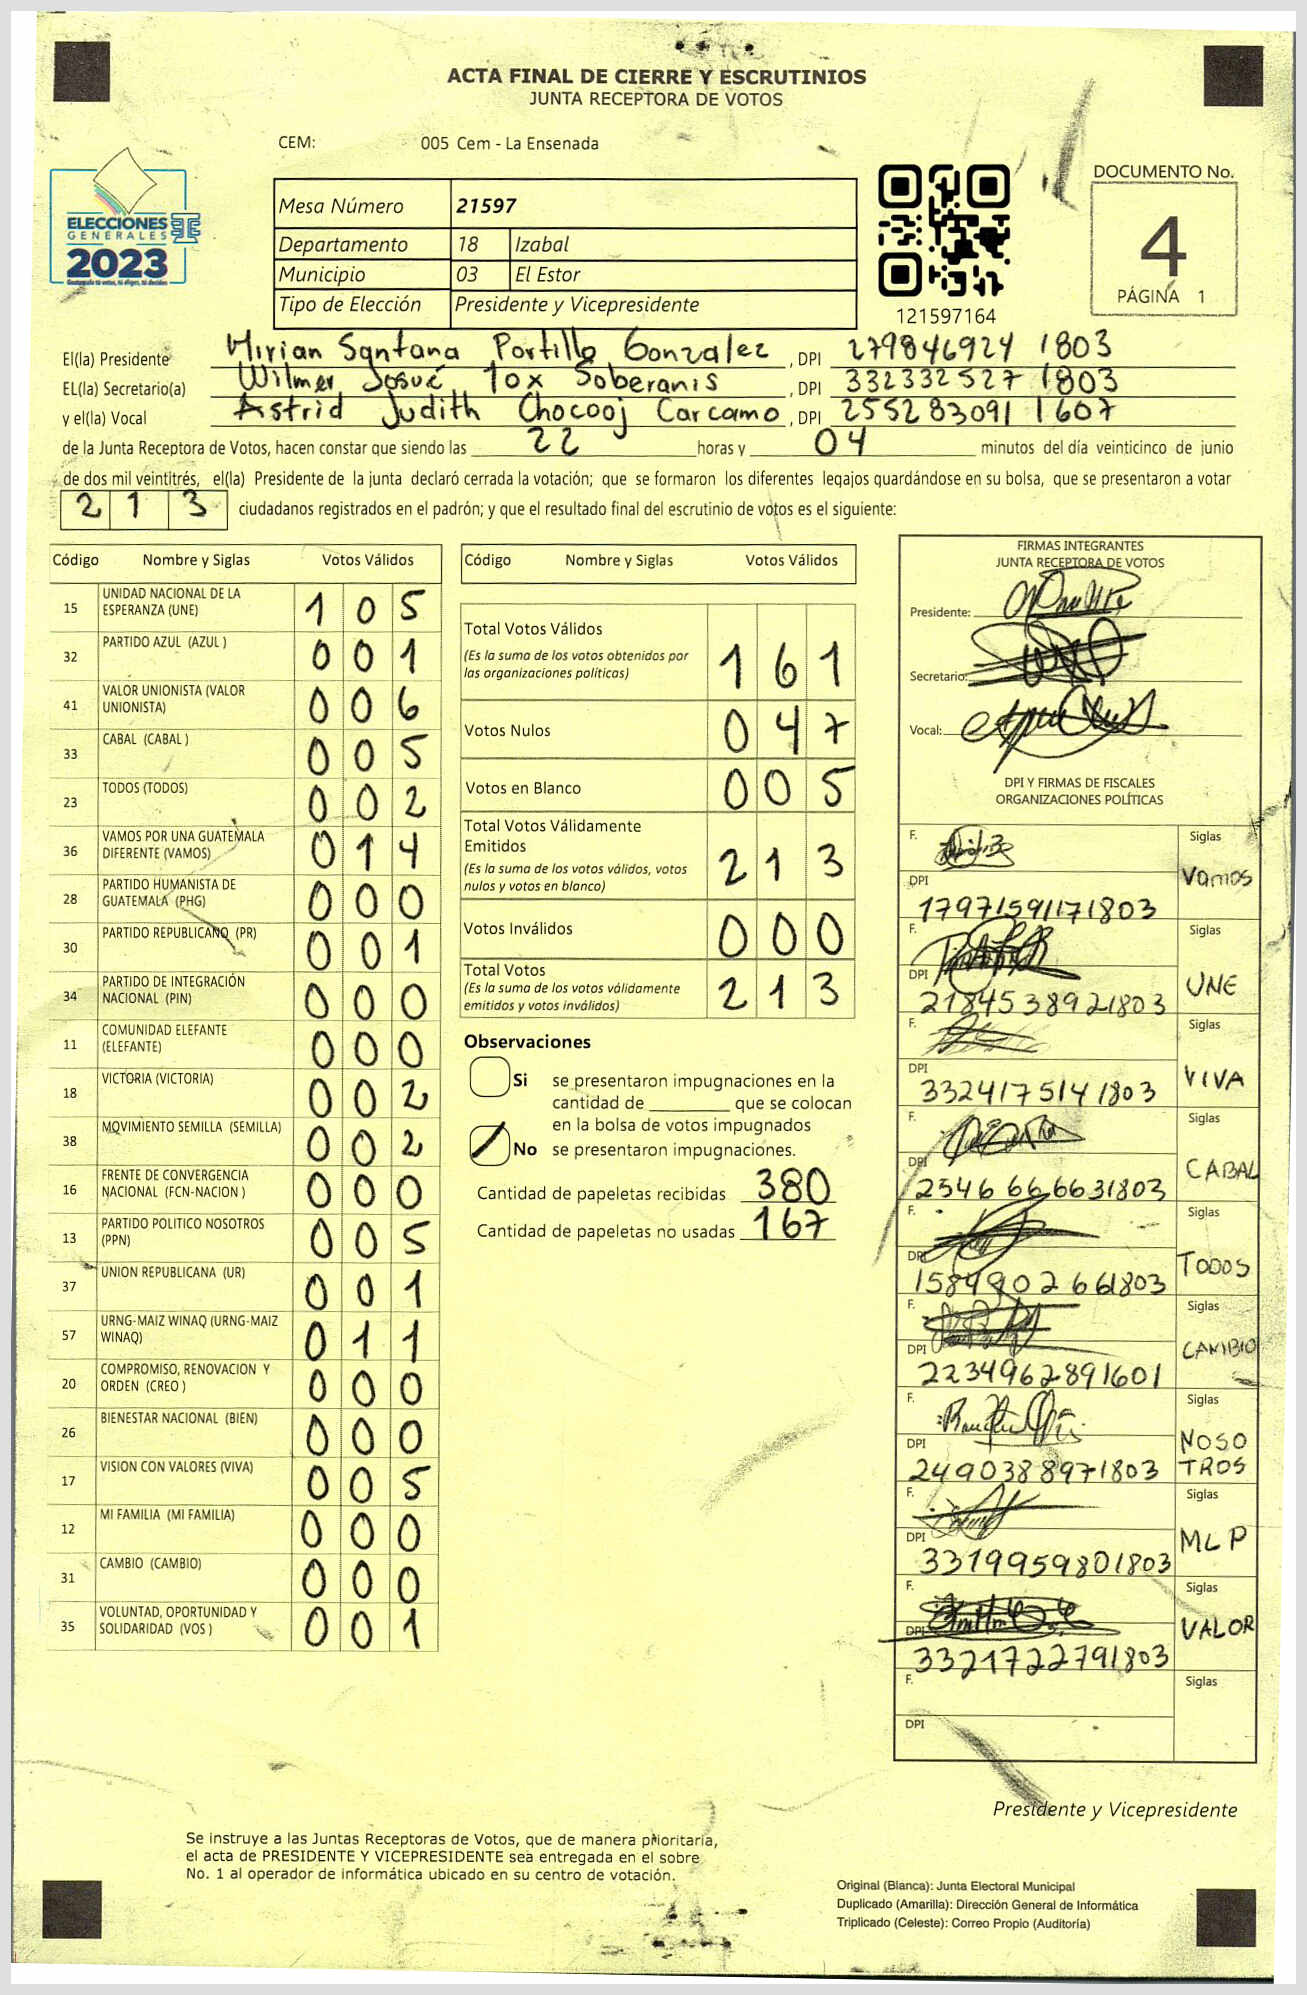 ACTA FINAL DE CIERRE Y ESCRUTINIOS
JUNTA RECEPTORA DE VOTOS
CEM: 005 Cem - La Ensenada
ELECCIONES
GENERALES
2023
Mesa Número 21597
Departamento 18 Izabal
Municipio 03 El Estor
Tipo de Elección Presidente y Vicepresidente
121597164
DOCUMENTO No.
4
PÁGINA 1
El(la) Presidente Mirian Santana Portillo Gonzalez, DPI 279846924 1803
EL(la) Secretario(a) Wilmer Josué 10x Soberanis, DPI 332332527 1803
y el(la) Vocal Astrid Judith Chocooj Carcamo, DPI 255283091 1607
de la Junta Receptora de Votos, hacen constar que siendo las 22 horas y 04 minutos del día veinticinco de junio
de dos mil veintitrés, el(la) Presidente de la junta declaró cerrada la votación; que se formaron los diferentes legajos guardándose en su bolsa, que se presentaron a votar
213 ciudadanos registrados en el padrón; y que el resultado final del escrutinio de votos es el siguiente:
Código Nombre y Siglas Votos Válidos
15 UNIDAD NACIONAL DE LA ESPERANZA (UNE) 105
32 PARTIDO AZUL (AZUL ) 001
41 VALOR UNIONISTA (VALOR UNIONISTA) 006
33 CABAL (CABAL ) 005
23 TODOS (TODOS) 002
36 VAMOS POR UNA GUATEMALA DIFERENTE (VAMOS) 014
28 PARTIDO HUMANISTA DE GUATEMALA (PHG) 000
30 PARTIDO REPUBLICANO (PR) 001
34 PARTIDO DE INTEGRACIÓN NACIONAL (PIN) 000
11 COMUNIDAD ELEFANTE (ELEFANTE) 000
18 VICTORIA (VICTORIA) 002
38 MOVIMIENTO SEMILLA (SEMILLA) 002
16 FRENTE DE CONVERGENCIA NACIONAL (FCN-NACION ) 000
13 PARTIDO POLITICO NOSOTROS (PPN) 005
37 UNION REPUBLICANA (UR) 001
57 URNG-MAIZ WINAQ (URNG-MAIZ WINAQ) 011
20 COMPROMISO, RENOVACION Y ORDEN (CREO ) 000
26 BIENESTAR NACIONAL (BIEN) 000
17 VISION CON VALORES (VIVA) 005
12 MI FAMILIA (MI FAMILIA) 000
31 CAMBIO (CAMBIO) 000
35 VOLUNTAD, OPORTUNIDAD Y SOLIDARIDAD (VOS ) 001
Código Nombre y Siglas Votos Válidos
Total Votos Válidos
(Es la suma de los votos obtenidos por las organizaciones políticas) 161
Votos Nulos 047
Votos en Blanco 005
Total Votos Válidamente Emitidos
(Es la suma de los votos válidos, votos nulos y votos en blanco) 213
Votos Inválidos 000
Total Votos
(Es la suma de los votos válidamente emitidos y votos inválidos) 213
Observaciones
Si se presentaron impugnaciones en la
cantidad de ________ que se colocan
en la bolsa de votos impugnados
No se presentaron impugnaciones.
Cantidad de papeletas recibidas 380
Cantidad de papeletas no usadas 167
FIRMAS INTEGRANTES
JUNTA RECEPTORA DE VOTOS
Presidente:
Secretario:
Vocal:
DPI Y FIRMAS DE FISCALES
ORGANIZACIONES POLÍTICAS
F. Siglas
DPI Vamos
17971591171803
F. Siglas
DPI UNE
2184538921803
F. Siglas
DPI VIVA
3324175141803
F. Siglas
DPI CABAL
2546666631803
F. Siglas
DPI TODOS
1584902661803
F. Siglas
DPI CAMBIO
2234962891601
F. Siglas
DPI NOSO
2490388971803 TROS
F. Siglas
DPI MLP
3319959801803
F. Siglas
DPI VALOR
3321722791803
F. Siglas
DPI
Presidente y Vicepresidente
Se instruye a las Juntas Receptoras de Votos, que de manera prioritaria,
el acta de PRESIDENTE Y VICEPRESIDENTE sea entregada en el sobre
No. 1 al operador de informática ubicado en su centro de votación.
Original (Blanca): Junta Electoral Municipal
Duplicado (Amarilla): Dirección General de Informática
Triplicado (Celeste): Correo Propio (Auditoría)